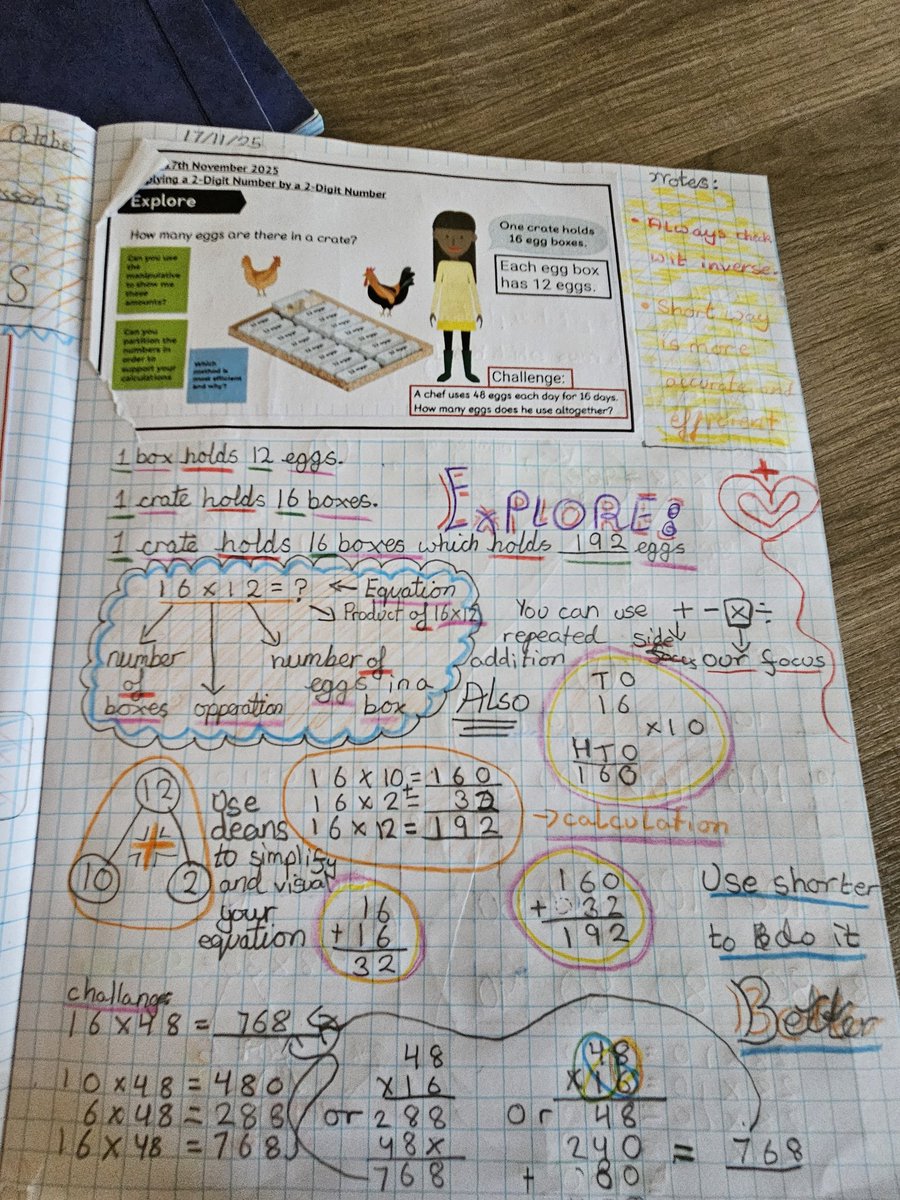 October
sson 5
S
17/11/25
7th November 2025
plying a 2-Digit Number by a 2-Digit Number
Explore
How many eggs are there in a crate?
Can you use
the
manipulative
to show me
these
amounts?
Can you
partition the
numbers in
order to
support your
calculations
Which
method is
most efficient
and why?
12 eggs
One crate holds
16 egg boxes.
Each egg box
has 12 eggs.
Challenge:
A chef uses 48 eggs each day for 16 days.
How many eggs does he use altogether?
Notes:
• Always check
wit inverse.
• Short way
is more
accurate and
1 box holds 12 eggs.
1 crate holds 16 boxes.
EXPLORE:
1 crate holds 16 boxes which holds 192 eggs
16 x 12 = ? ← Equation
↘ Product of 16x12
number
of
boxes
opperation
number of
eggs in a
box
You can use + - x ÷
repeated
addition
side
focus
our focus
Also
T O
1 6
x 1 0
H T O
1 6 0
12
10
2
Use
deans
to simplify
and visual
your
equation
16 x 10 = 160
+
16 x 2 = 32
16 x 12 = 192
→ calculation
16
+ 16
32
160
+ 032
192
Use shorter
to do it
Better
challange
16 x 48 = 768
10 x 48 = 480
6 x 48 = 288
16 x 48 = 768
or
48
x 16
288
48x
768
or
48
x 16
48
240
+ 80
= 768